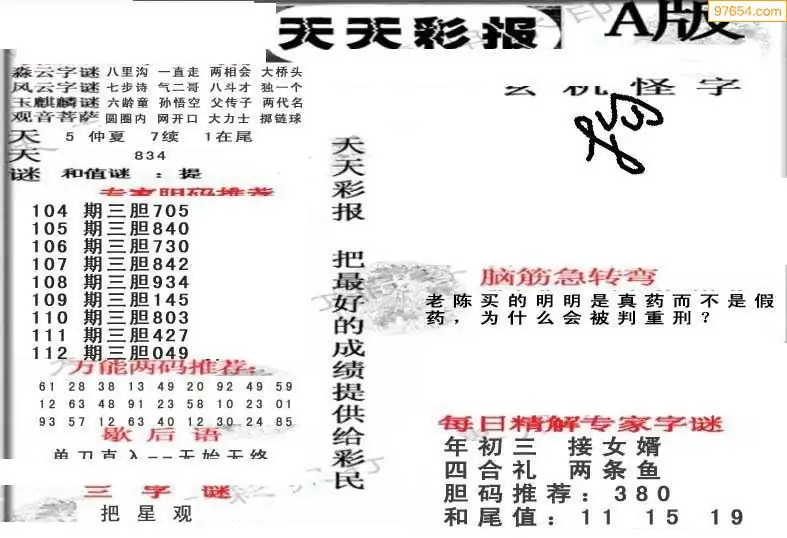 97654.com
天天彩报
A版
淼云字谜 八里沟 一直走 两相会 大桥头
风云字谜 七步诗 气二哥 八斗才 独一个
玉麒麟谜 六龄童 孙悟空 父传子 两代名
观音菩萨 圆圈内 网开口 大力士 掷链球
天 5 仲夏 7续 1在尾
天 834
谜 和值谜 : 提
专家胆码推荐
104 期三胆705
105 期三胆840
106 期三胆730
107 期三胆842
108 期三胆934
109 期三胆145
110 期三胆803
111 期三胆427
112 期三胆049
万能两码推荐:
61 28 38 13 49 20 92 49 59
12 63 48 91 23 58 10 23 01
93 57 12 63 40 12 30 24 85
歇后语
单刀直入--无始无终
三字谜
把星观
天天彩报 把最好的成绩提供给彩民
玄机怪字
脑筋急转弯
老陈买的明明是真药而不是假
药，为什么会被判重刑？
每日精解专家字谜
年初三 接女婿
四合礼 两条鱼
胆码推荐: 380
和尾值: 11 15 19